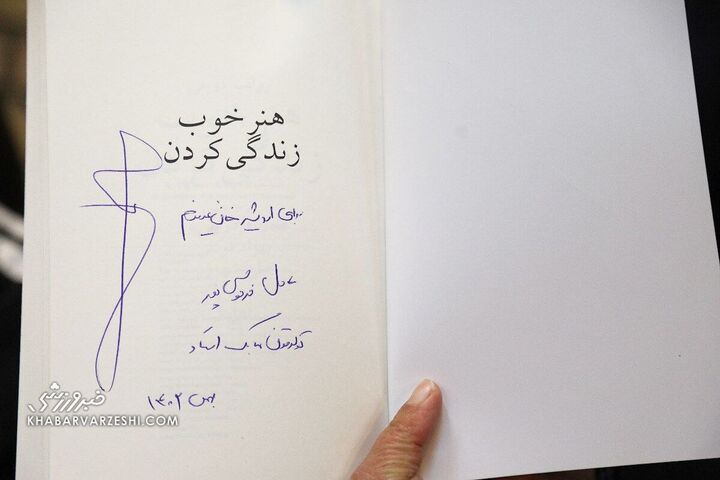 هنر خوب
زندگی کردن
برای اردشیر خان عزیزم
عادل فردوسی پور
تولدتون مبارک استاد
بهمن ۱۴۰۲
خبرورزشی
KHABARVARZESHI.COM